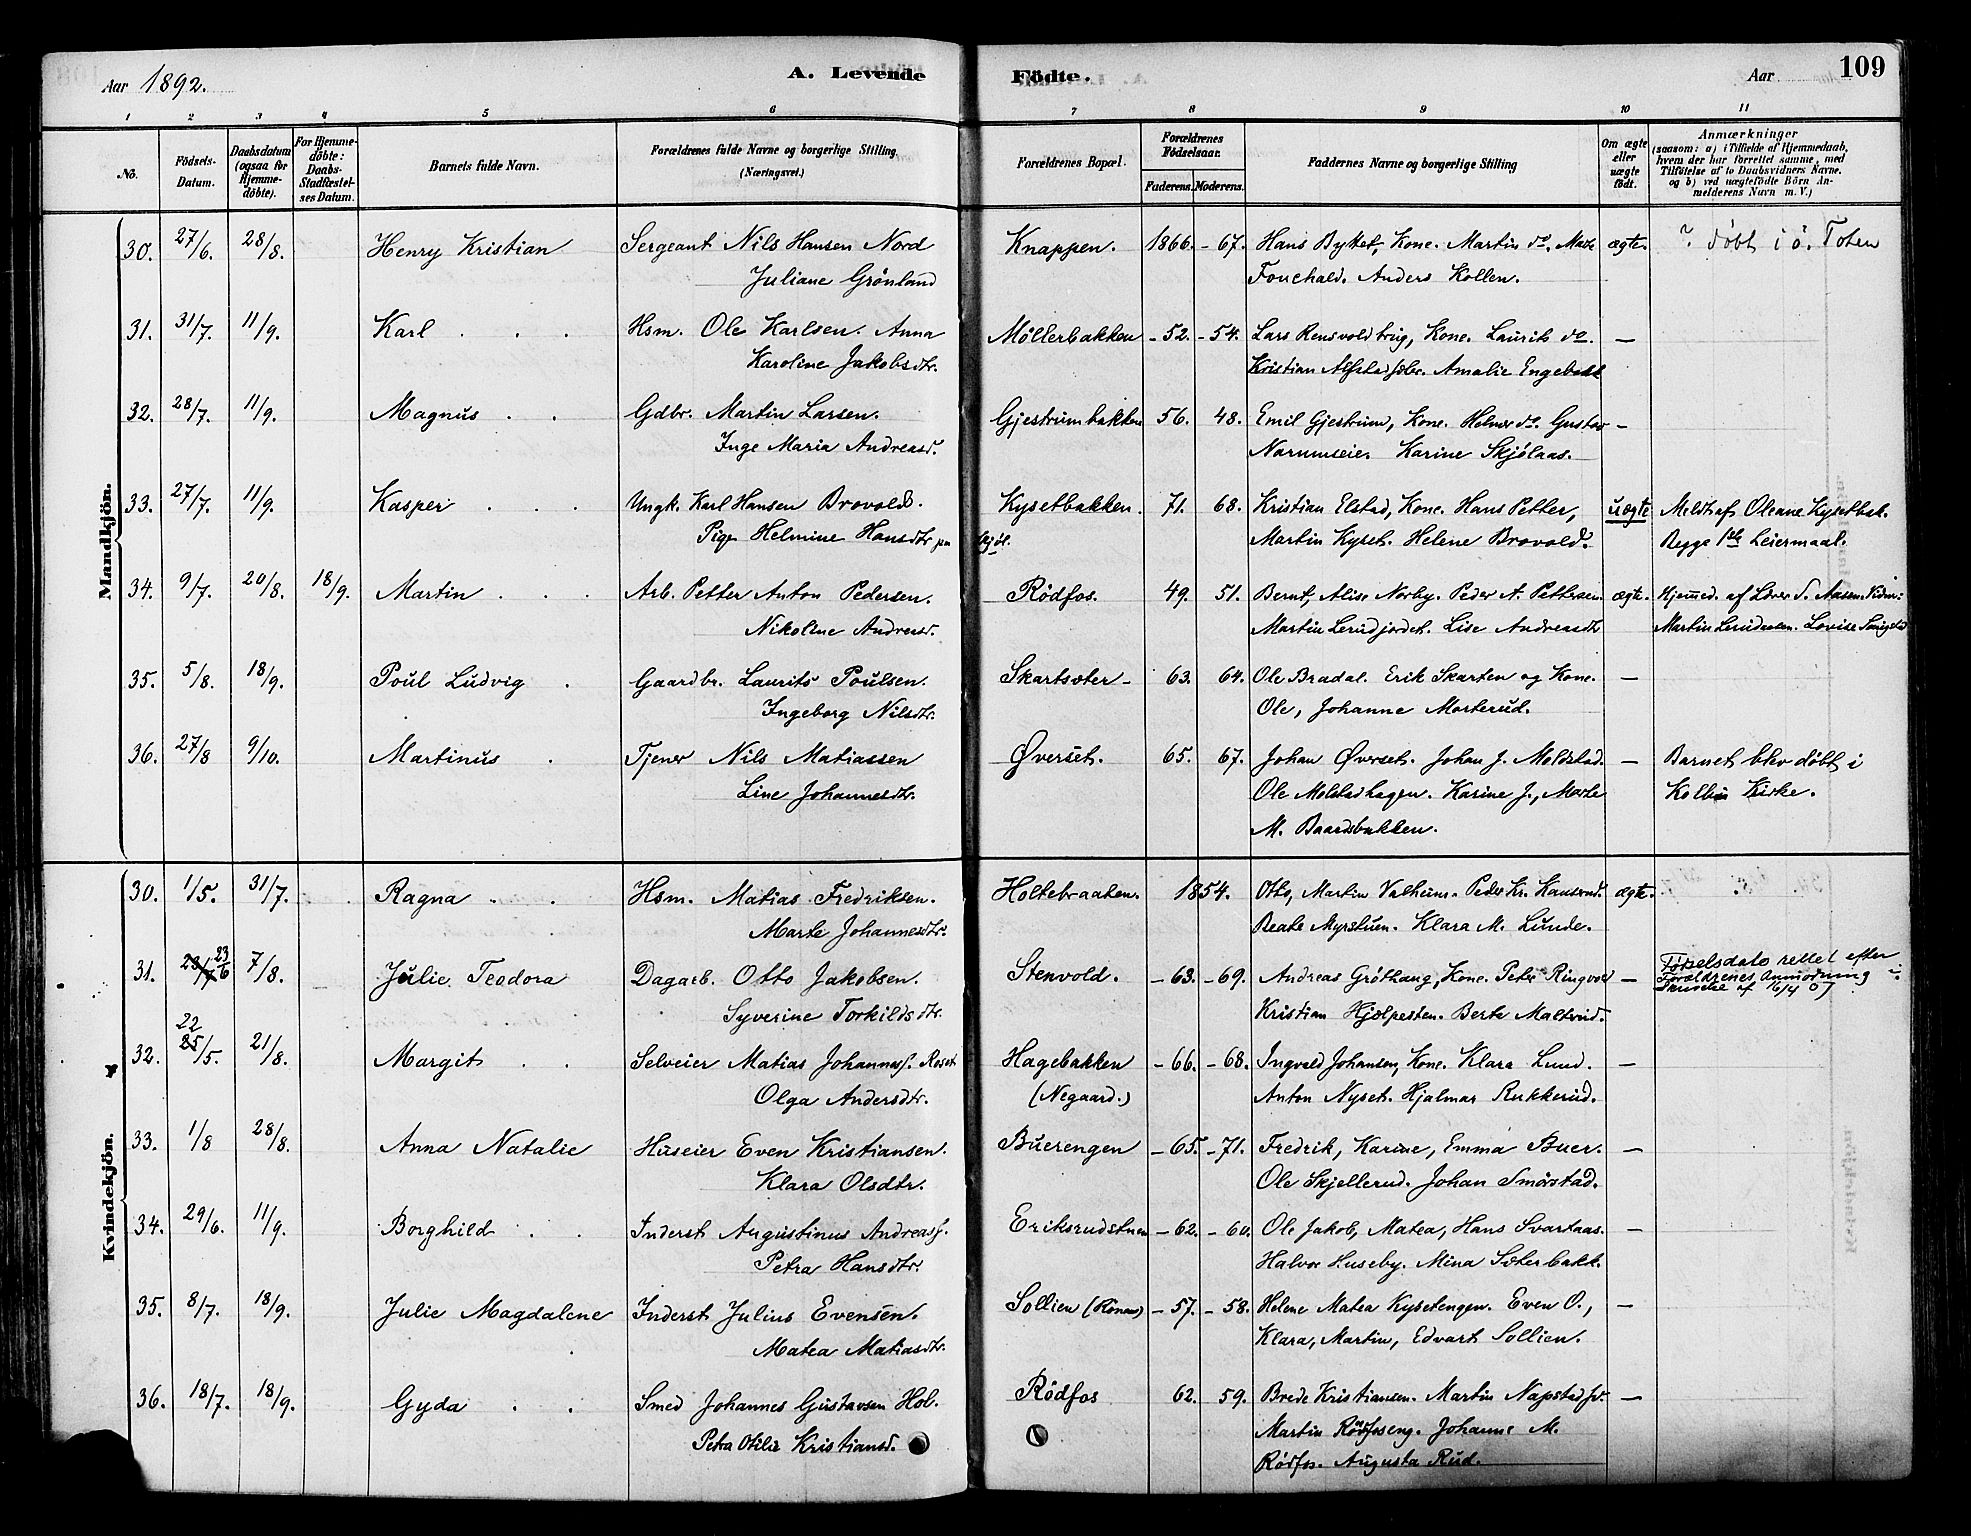 Aar 1892. A. Levende Födte. Aar 109
1 2 3 4 5 6 7 8 9 10 11
No. Födsels-Datum. Daabsdatum (ogsaa for Hjemmedöbte). For Hjemmedöbte: Daabs-Stadfæstelses Datum. Barnets fulde Navn. Forældrenes fulde Navne og borgerlige Stilling (Næringsvei.) Forældrenes Bopæl. Forældrenes Födselsaar. Faderens. Moderens. Faddernes Navne og borgerlige Stilling Om ægte eller uægte födt. Anmærkninger (saasom: a) i Tilfælde af Hjemmedaab, hvem der har forrettet samme, med Tilföielse af to Daabsvidners Navne. og b) ved uægtefödte Börn Anmelderens Navn m. V.)
Mandkjön.
30. 27/6. 28/8. Henry Kristian Sergeant Nils Hansen Nord Knappen. 1866. -67. Hans Byttet, Kone. Martin do. ægte. ? döbt i ö. Toten
Juliane Grönland Fouchald. Anders Kollen.
31. 31/7. 11/9. Karl Hsm. Ole Karlsen. Anna Möllerbakken -52. -54. Lars Rensvoldbrug, Kone. Laurits do. —
Karoline Jakobsdtr. Kristian Amalie
32. 28/7. 11/9. Magnus Gdbr. Martin Larsen. Gjestrumbakken 56. 48. Emil Gjestrum, Kone. Helmer do. Gustav —
Inge Maria Andreasd. Narumseie. Karine Skjölaas.
33. 27/7. 11/9. Kasper Ungk. Karl Hansen Brovold. Kysetbakken. 71. 68. Kristian Elstad, Kone. Hans Petter, uægte Meldt af Oleane Kysetbak.
Pige Helmine Hansdtr Martin Kyset. Helene Brovold. Begge 1ste Leiermaal.
34. 9/7. 20/8. 18/9. Martin Arb. Petter Anton Pedersen. Rödfos. 49. 51. Bernt, Alise Norby. Peder A. Pettersen. ægte. Hjemmed. af Lærer S. Aasen.
Nikoline Andreasd. Martin Lerudjordet. Lise Andreasdtr Martin Lovise
35. 5/8. 18/9. Poul Ludvig Gaardbr. Laurits Poulsen. Skartsæter - 63. 64. Ole Bradal. Erik Skarten og Kone. —
Ingeborg Nilsdtr. Ole, Johanne Marterud.
36. 27/8 9/10. Martinus Tjener Nils Matiassen Øverset. 65. 67. Johan Øverset. Johan J. Moldstad. — Barnet blev döbt i
Line Johannesdtr. Ole Molstadhagen. Karine J., Marte Kolbu Kirke.
M. Baardsbakken.
Kvindekjön.
30. 1/5. 31/7. Ragna Hsm. Matias Fredriksen. Holtebraaten. 1854. Otto, Martin Valheim. Peder Kr. ægte.
Marte Johannesdtr. Beate Myrstuen. Klara M. Lunde.
31. 23/6 7/8. Julie Teodora Dagarb. Otto Jakobsen. Stenvold. -63. -69. Andreas Gröthaug, Kone. Peter Ringvold — Födselsdato rettet efter
Forældrenes Anmodning i
Syverine Torkildsdtr. Kristian Hjælpesten. Berte Malterud. Skrivelse af 16/4 07
32. 22 25/5. 21/8. Margit Selveier Matias Johannesf. Roset Hagebakken -66. -68. Ingvald Johansen, Kone. Klara Lund. —
Olga Andersdtr. (Negaard.) Anton Nyset. Hjalmar Rukkerud.
33. 1/8 28/8. Anna Natalie Huseier Even Kristiansen. Buerengen -65. -71. Fredrik, Karine, Emma Buer. —
Klara Olsdtr. Ole Skjellerud. Johan Smörstad.
34. 29/6. 11/9. Borghild Inderst Augustinus Andreasf. Eriksrudstuen -62. -60. Ole Jakob, Matea, Hans Svartaas. —
Petra Hansdtr. Halvor Huseby. Mina Sæterbakk.
35. 8/7. 18/9. Julie Magdalene Inderst Julius Evensen. Sollien -57. -58. Helene Matea Kysetengen. Even O., —
Matea Matiasdtr. Klara, Martin, Edvart Sollien.
36. 18/7. 18/9. Gyda Smed Johannes Gustavsen Hol. Rödfos 62. 59. Brede Kristiansen. Martin —
Petra Otilie Kristiansd. Martin Rödfoseng. Johanne M.
Rödfos. Augusta Rud.